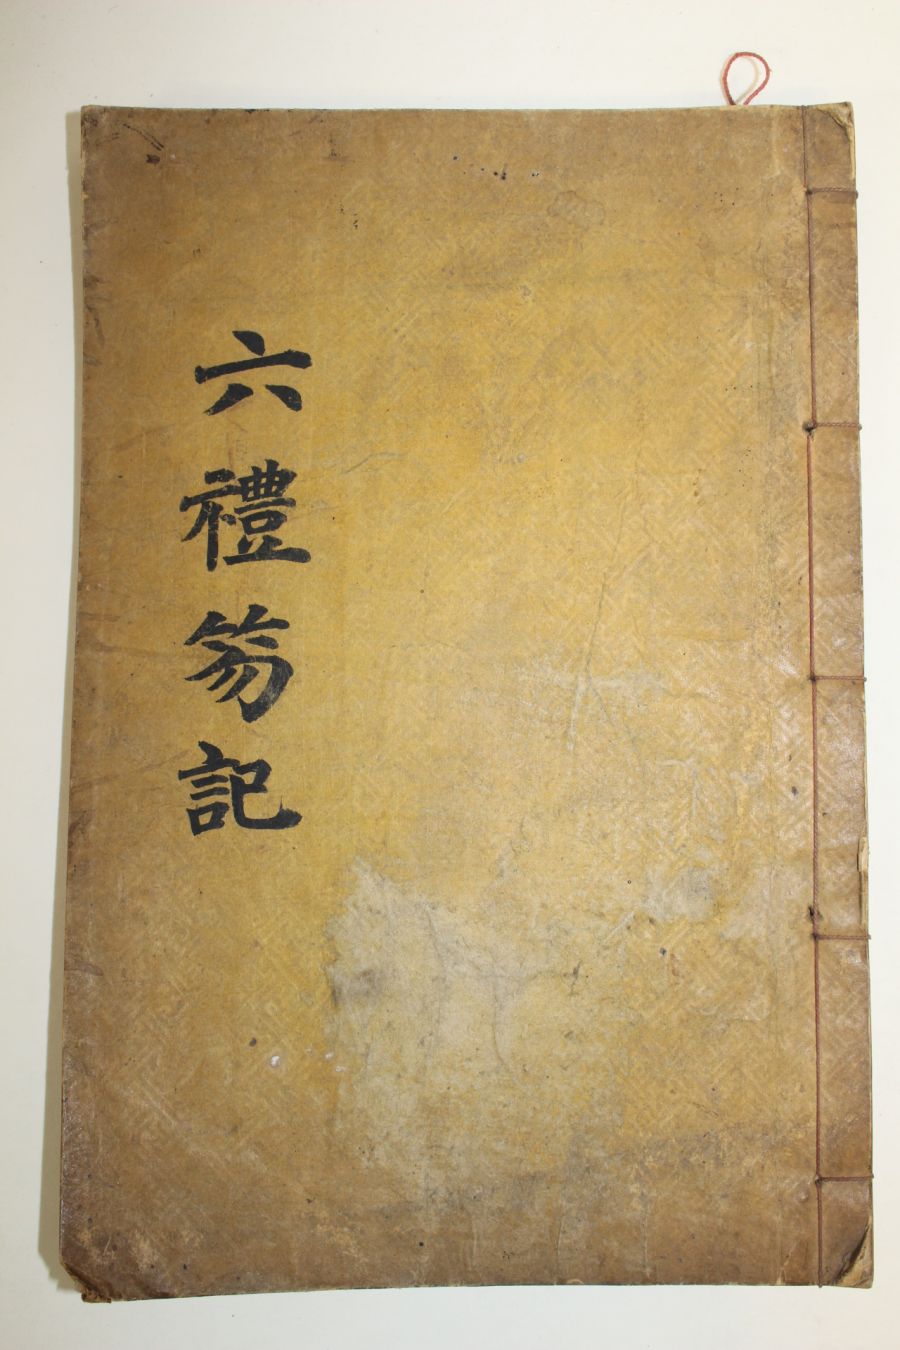 六禮笏記